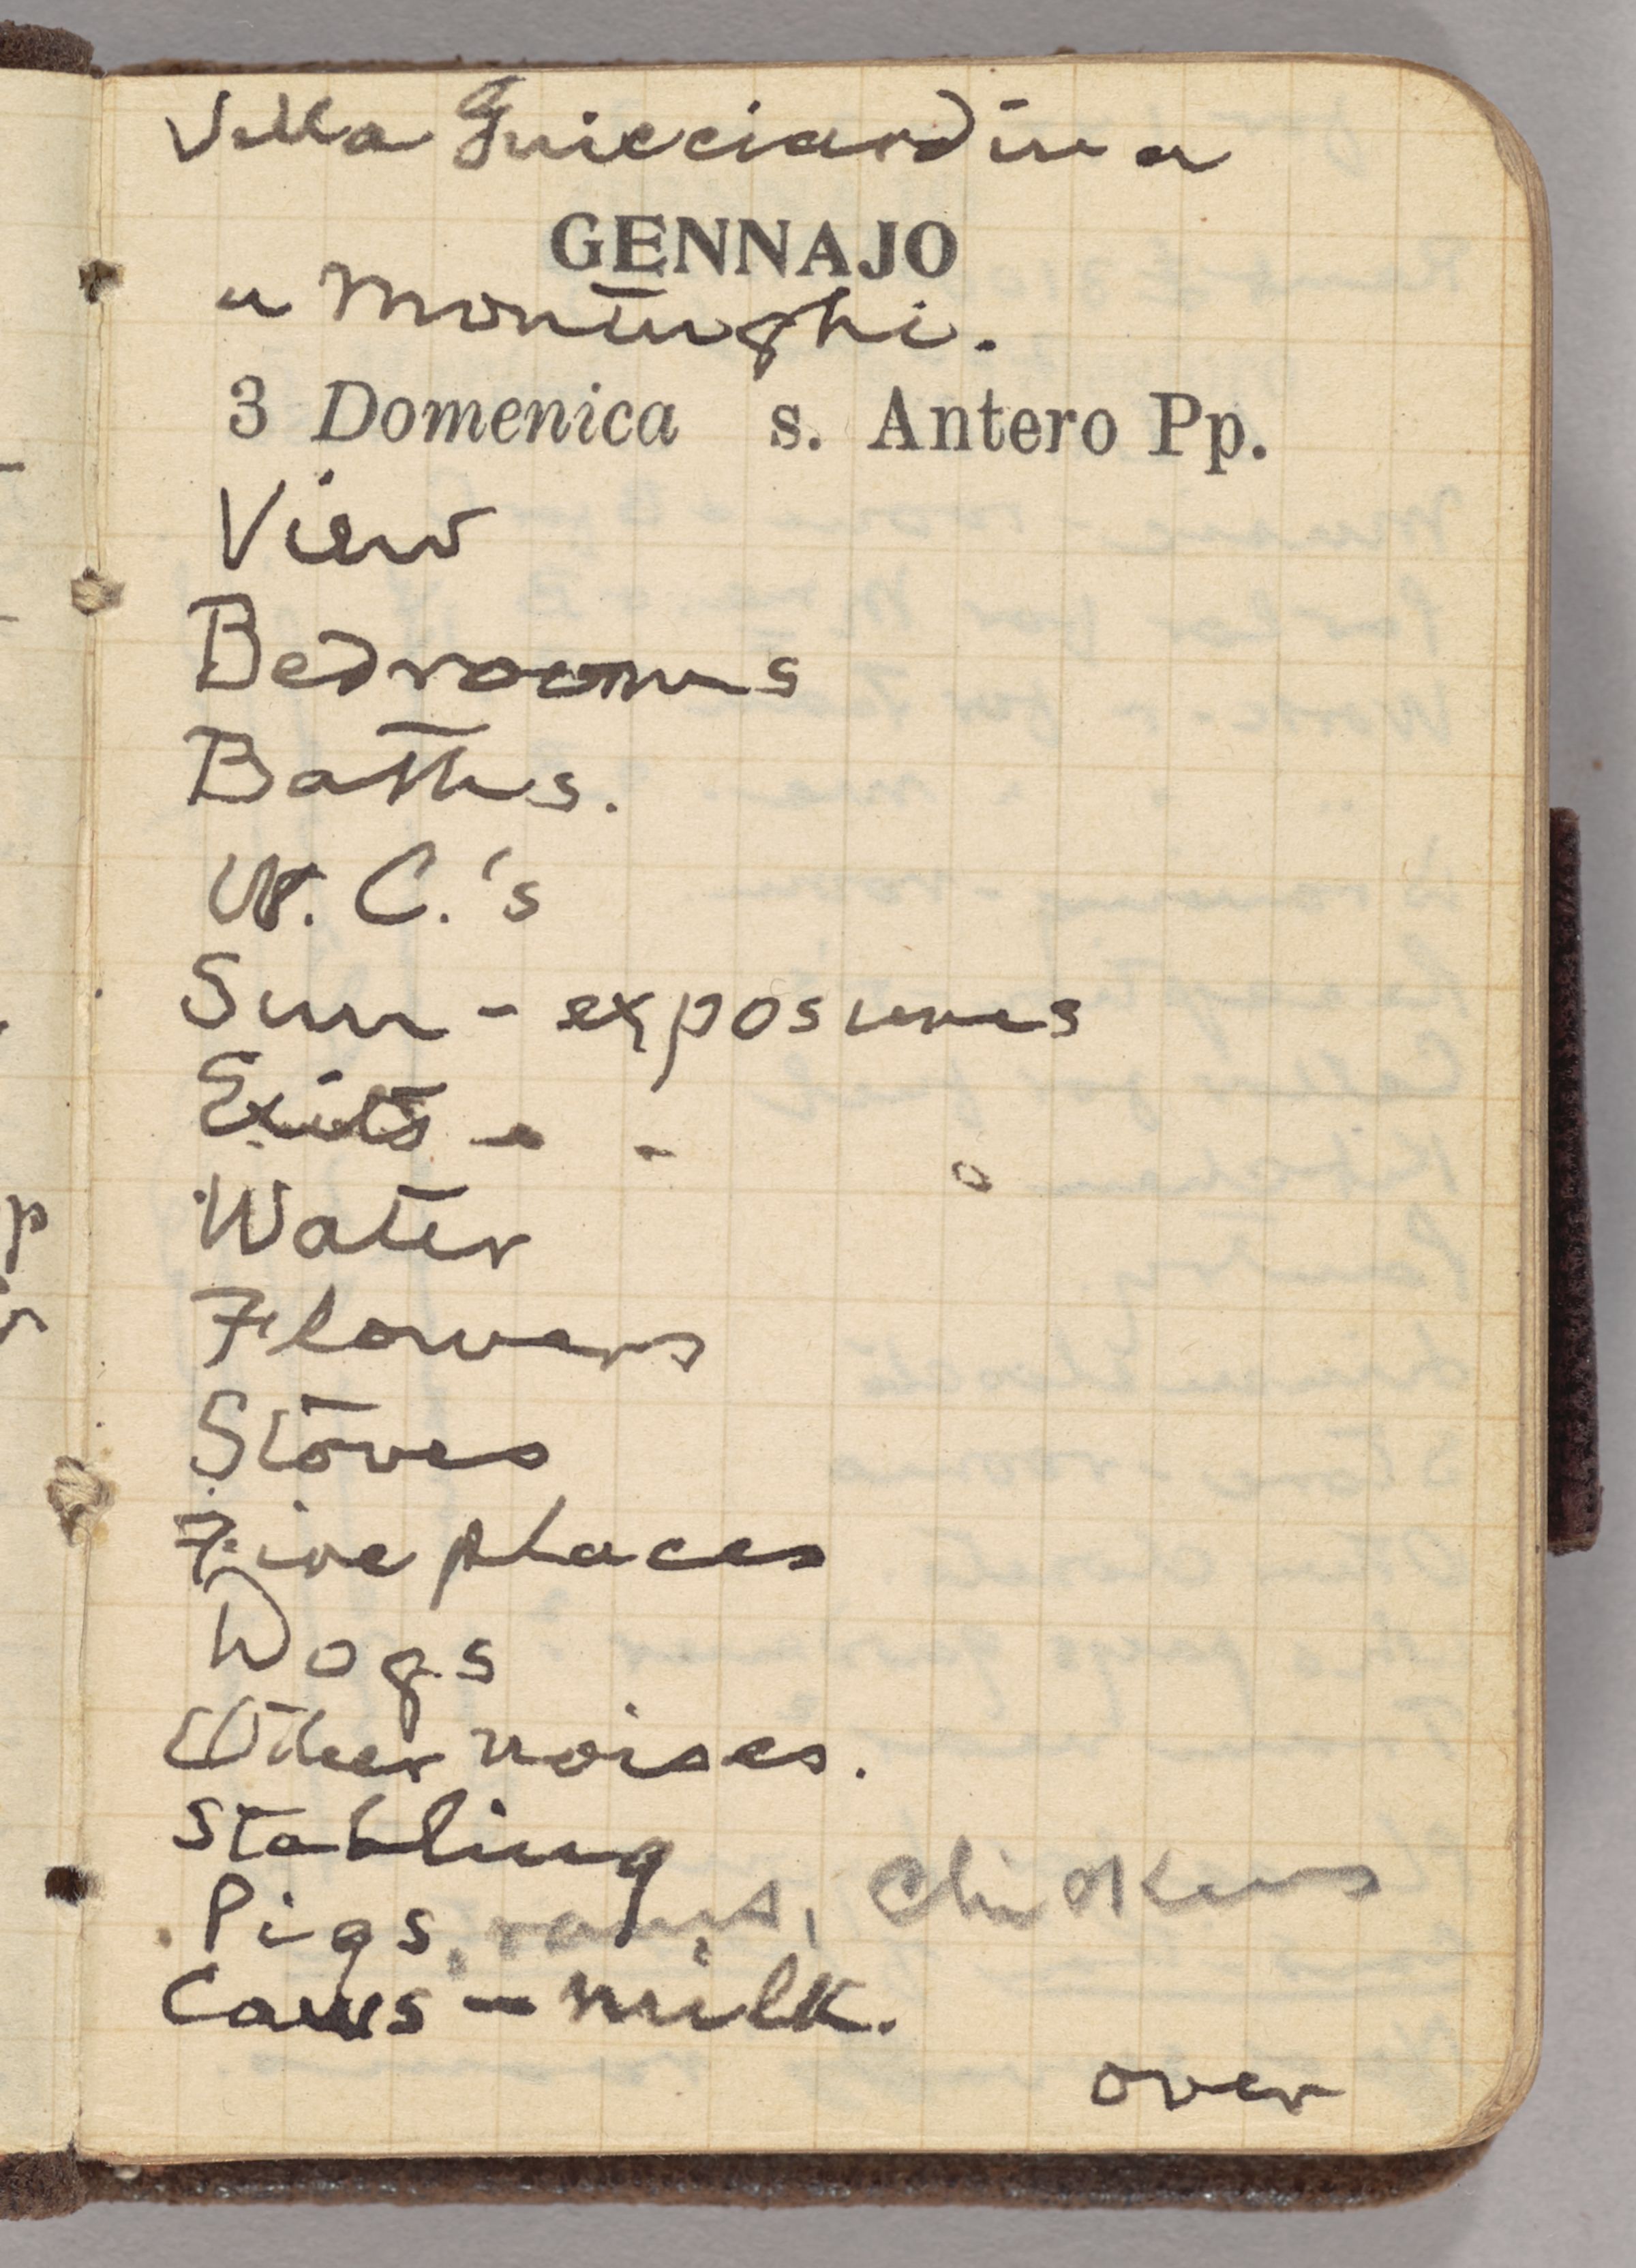 Villa Guicciardini a
GENNAJO
a Montughi.
3 Domenica s. Antero Pp.
View
Bedrooms
Baths.
W. C.'s
Sun - exposures
Exits - -
Water
Flowers
Stoves
Fire places
Dogs
Other noises.
Stabling
Pigs, chickens
Cows - milk.
over